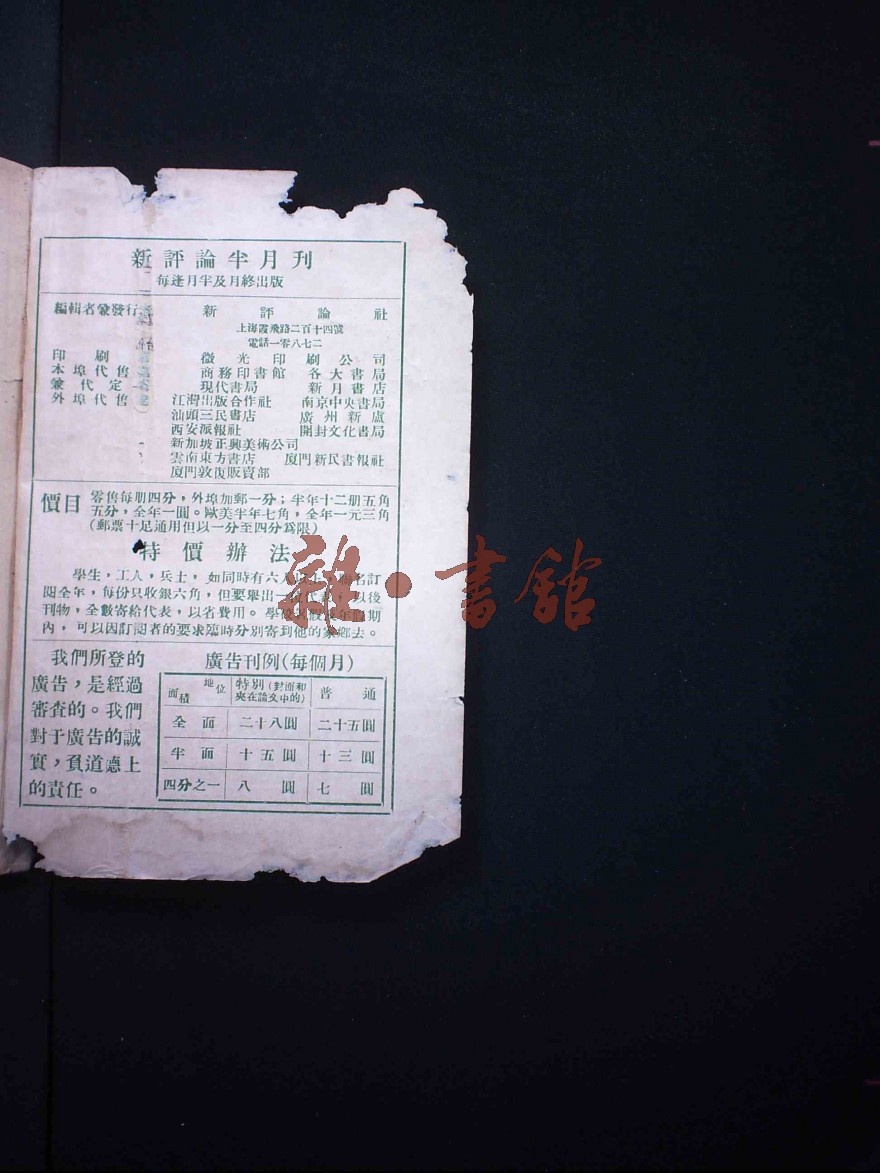 新評論半月刊
每逢月半及月終出版
編輯者兼發行 新評論社
上海霞飛路二百十四號
電話一零八七二
印刷 微光印刷公司
本埠代售 商務印書館 各大書局
兼代定 現代書局 新月書店
外埠代售 江灣出版合作社 南京中央書局
汕頭三民書店 廣州新盧
西安派報社 開封文化書局
新加坡正興美術公司
雲南東方書店 厦門新民書報社
厦門敦復販賣部
價目 零售每册四分，外埠加郵一分；半年十二册五角
五分，全年一圓。歐美半年七角，全年一元三角
(郵票十足通用但以一分至四分爲限)
特價辦法
學生，工人，兵士，如同時有六人以上，聯名訂
閱全年，每份只收銀六角，但要舉出一位代表，以後
刊物，全數寄給代表，以省費用。學校若假年假期
內，可以因訂閱者的要求臨時分別寄到他的家鄉去。
我們所登的
廣告，是經過
審查的。我們
對于廣告的誠
實，負道德上
的責任。
廣告刊例(每個月)
面積 地位 特別(對面和夾在論文中的) 普通
全面 二十八圓 二十五圓
半面 十五圓 十三圓
四分之一 八圓 七圓
雜·書館